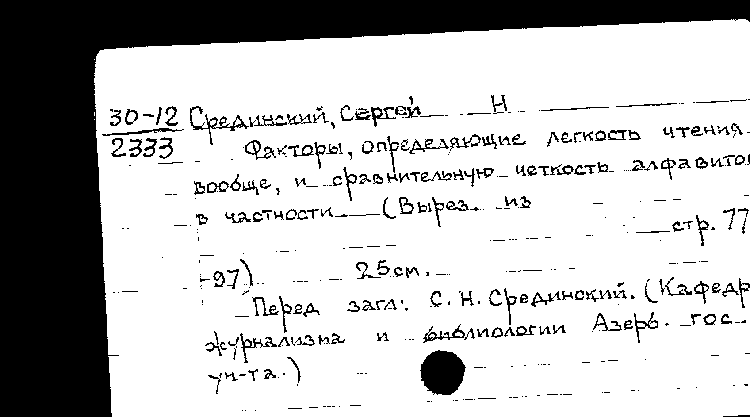 30-12 Срединский, Сергей Н
2333 Факторы, определяющие легкость чтения
вообще, и сравнительную четкость алфавитов
в частности (Вырез. из
стр. 77
-97) 25 см.
Перед загл: С. Н. Срединский. (Кафедр
журнализма и библиологии Азерб. гос.
ун-та.)